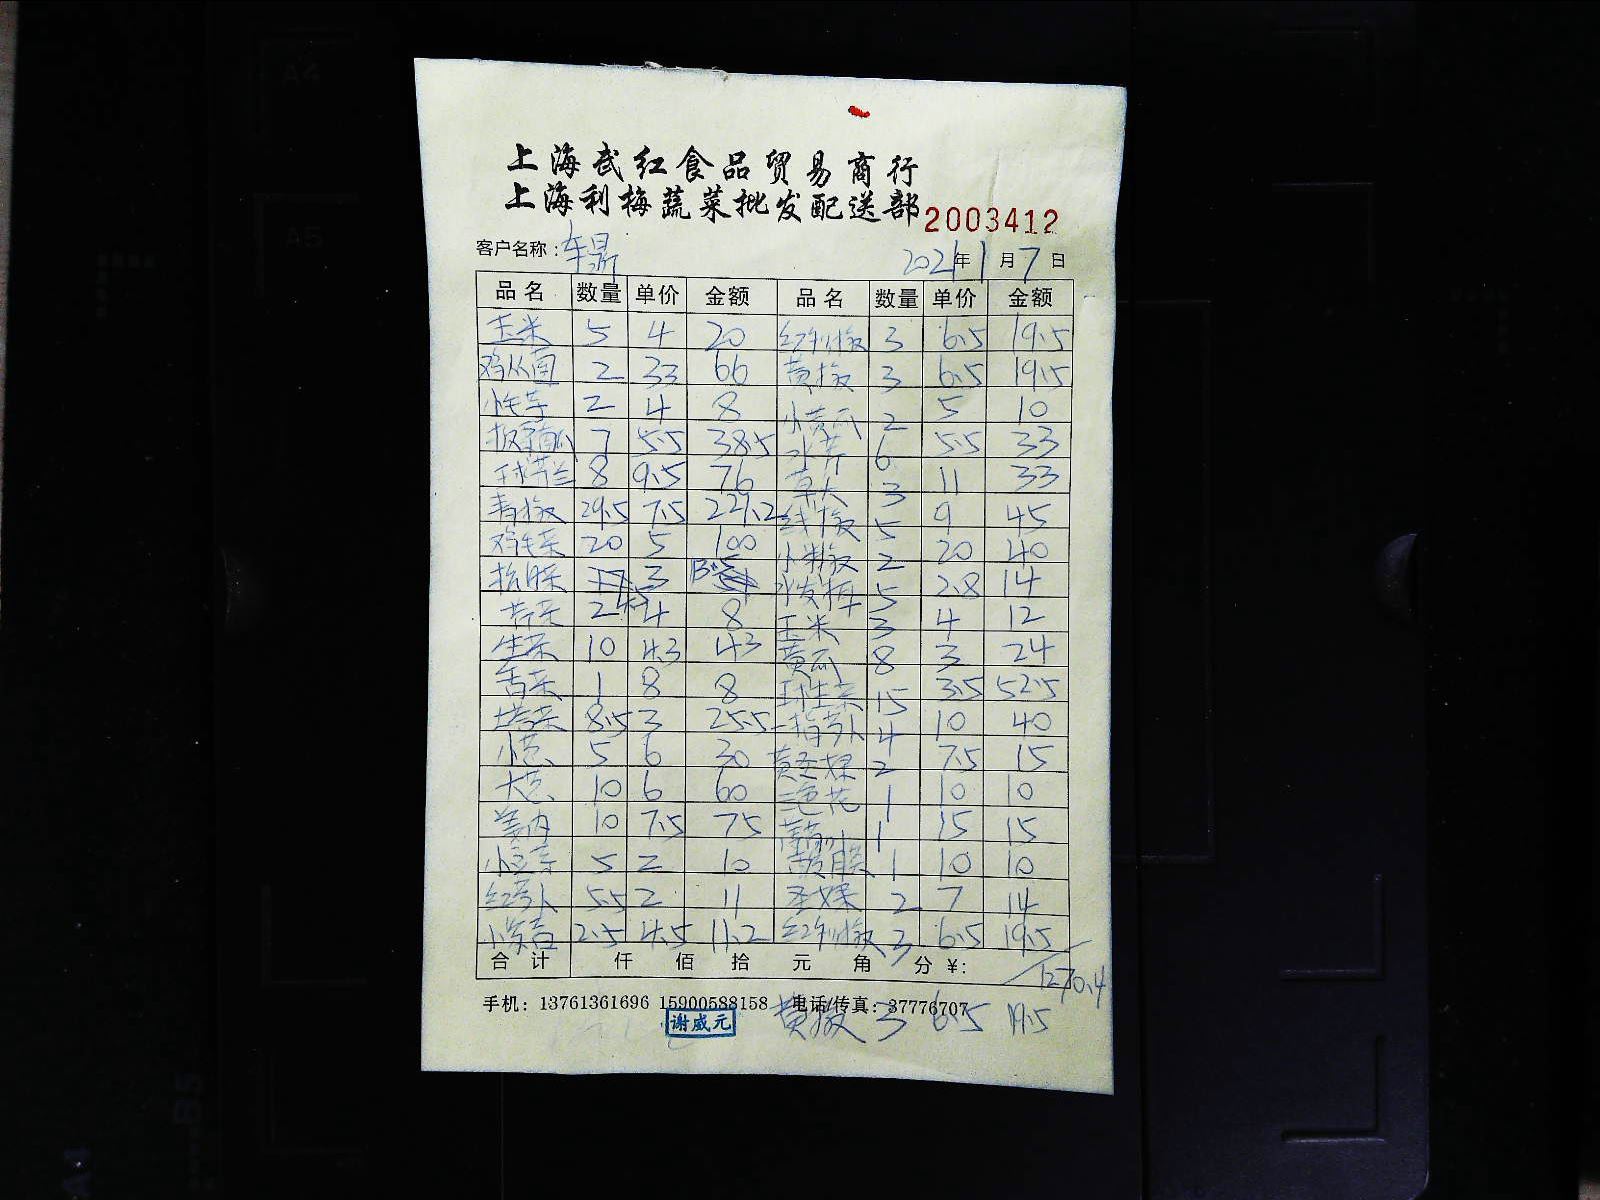 上海武红食品贸易商行
上海利梅蔬菜批发配送部 2003412
客户名称: 2021年1月7日
品名 数量 单价 金额 品名 数量 单价 金额
玉米 5 4 20 红利椒 3 6.5 19.5
鸡从菌 2 33 66 黄椒 3 6.5 19.5
小毛芋 2 4 8 小黄瓜 2 5 10
7 5.5 38.5 水芹 6 5.5 33
8 9.5 76 草头 3 11 33
青椒 29.5 7.5 221.2 线椒 5 9 45
鸡毛菜 20 5 100 小米椒 2 20 40
3 13.5 5 2.8 14
2 4 8 玉米 3 4 12
生菜 10 4.3 43 黄瓜 8 3 24
香菜 1 8 8 球生菜 15 3.5 52.5
塔菜 8.5 3 25.5 一指萝卜 4 10 40
小葱 5 6 30 黄圣果 2 7.5 15
大葱 10 6 60 三色花 1 10 10
姜肉 10 7.5 75 1 15 15
5 2 10 1 10 10
红萝卜 5.5 2 11 圣女果 2 7 14
2.5 4.5 11.2 红利椒 3 6.5 19.5
合计 仟 佰 拾 元 角 分 ¥: 1270.4
手机: 13761361696 15900588158 电话/传真: 37776707
谢威元
黄椒 3 6.5 19.5